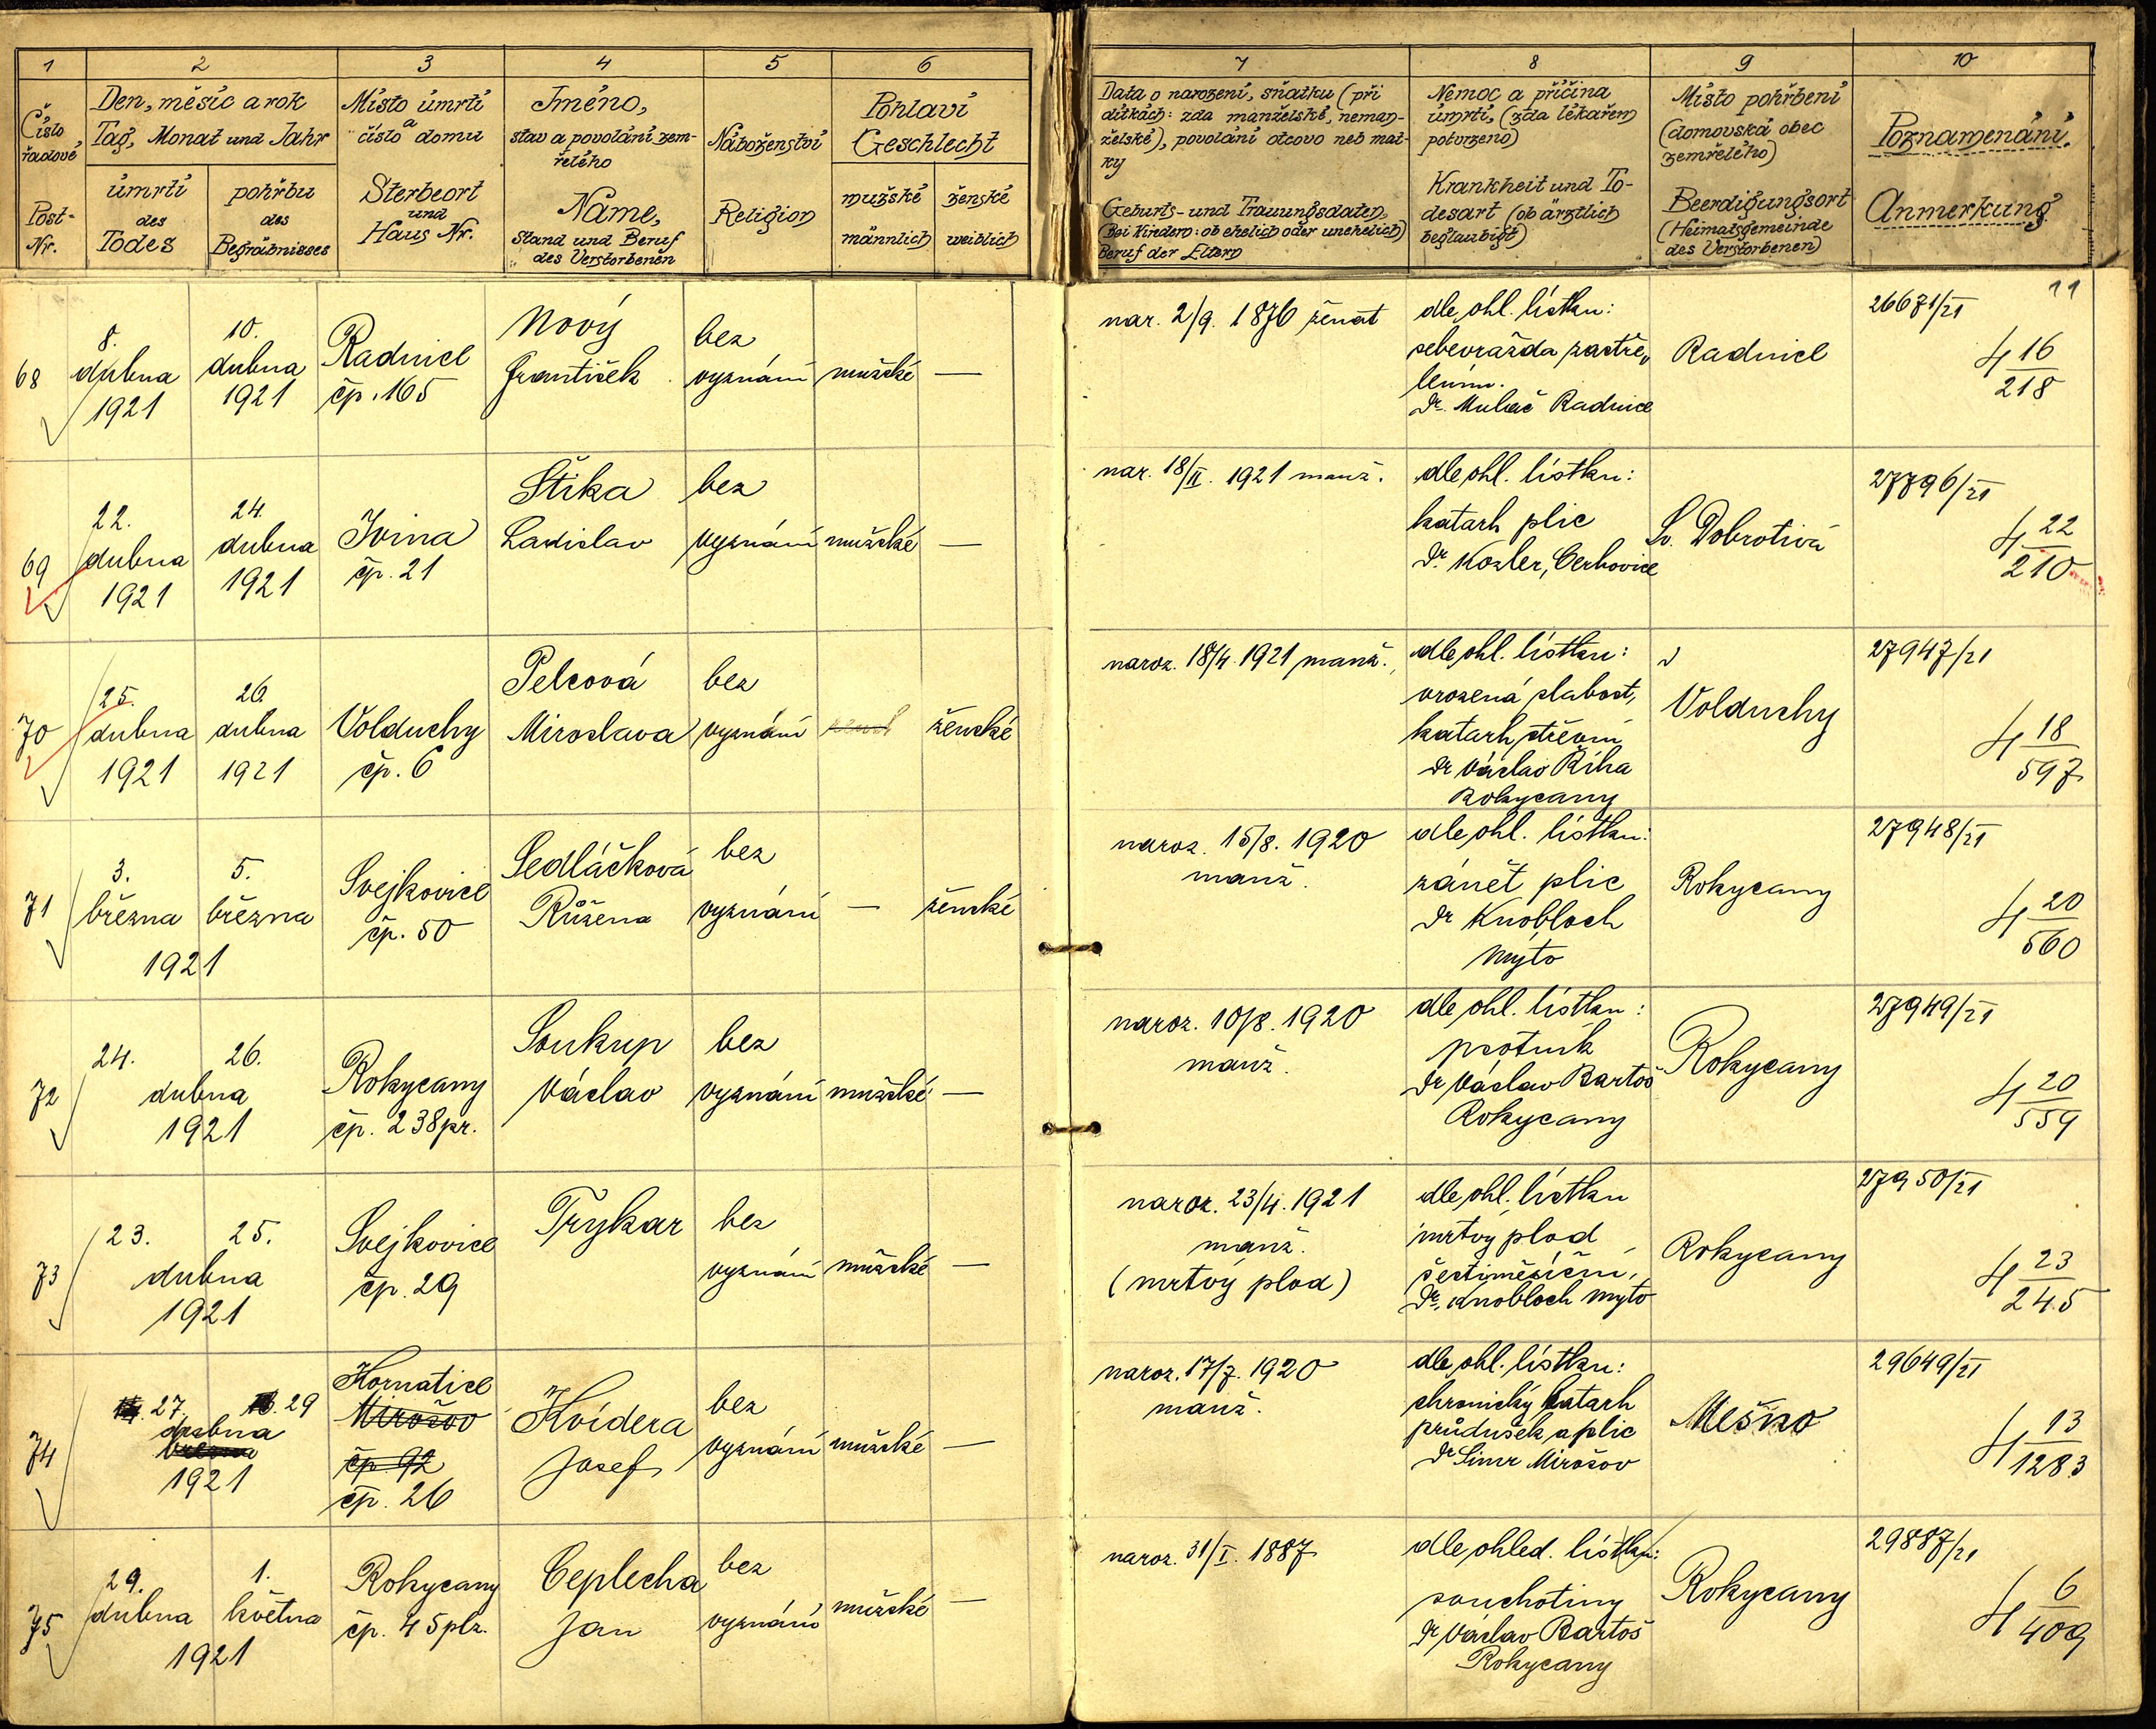 1
2
3
4
5
6
Číslo
řadové
Post-
Nr.
Den, měsíc a rok
Tag, Monat und Jahr
úmrtí
des
Todes
pohřbu
des
Begräbnisses
Místo úmrtí
a
číslo domu
Sterbeort
und
Haus Nr.
Jméno,
stav a povolání zem-
řelého
Name,
Stand und Beruf
des Verstorbenen
Náboženství
Religion
Pohlaví
Geschlecht
mužské
männlich
ženské
weiblich
68
8.
dubna
1921
10.
dubna
1921
Radnice
čp. 165
Nový
František
bez
vyznání
mužské
—
69
22.
dubna
1921
24.
dubna
1921
Ivina
čp. 21
Štika
Ladislav
bez
vyznání
mužské
—
70
25.
dubna
1921
26.
dubna
1921
Volduchy
čp. 6
Pelcová
Miroslava
bez
vyznání
ženské
71
3.
března
5.
března
1921
Svejkovice
čp. 50
Sedláčková
Růžena
bez
vyznání
—
ženské
72
24.
26.
dubna
1921
Rokycany
čp. 238 pr.
Soukup
Václav
bez
vyznání
mužské
—
73
23.
25.
dubna
1921
Svejkovice
čp. 29
Trykar
bez
vyznání
mužské
—
74
27.
29
dubna
1921
Kornatice
Mirošov
čp. 92
čp. 26
Hvídera
Josef
bez
vyznání
mužské
—
75
29.
dubna
1.
května
1921
Rokycany
čp. 45 plz.
Ceplecha
Jan
bez
vyznání
mužské
—
7
8
9
10
Data o narození, sňatku (při
dítkách: zda manželské, neman-
želské), povolání otcovo neb mat-
ky
Geburts- und Trauungsdaten
(Bei Kindern: ob ehelich oder unehelich)
Beruf der Eltern
Nemoc a příčina
úmrtí, (zda lékařem
potvrzeno)
Krankheit und To-
desart (ob ärztlich
beglaubigt)
Místo pohřbení
(domovská obec
zemřelého)
Beerdigungsort
(Heimatsgemeinde
des Verstorbenen)
Poznamenání.
Anmerkung
11
nar. 2/9. 1876 ženat
dle ohl. lístku:
sebevražda zastře-
lením.
Dr. Mulač Radnice
Radnice
26671/21
4 16/218
nar. 18/II. 1921 manž.
dle ohl. lístku:
katarh plic
Dr. Kozler, Cerhovice
Sv. Dobrotivá
27796/21
4 22/210
naroz. 18/4. 1921 manž.
dle ohl. lístku:
vrozená slabost,
katarh střevní
Dr Václav Říha
Rokycany
Volduchy
27947/21
4 18/597
naroz. 15/8. 1920
manž.
dle ohl. lístku:
zánět plic
Dr Knobloch
Mýto
Rokycany
27948/21
4 20/560
naroz. 10/8. 1920
manž.
dle ohl. lístku:
psotník
Dr Václav Bartoš
Rokycany
Rokycany
27949/21
4 20/559
naroz. 23/4. 1921
manž.
(mrtvý plod)
dle ohl. lístku
mrtvý plod
šestiměsíční,
Dr. Knobloch Mýto
Rokycany
27950/21
4 23/245
naroz. 17/7. 1920
manž.
dle ohl. lístku:
chronický katarh
průdušek a plic
Dr Mirošov
Mešno
29649/21
4 13/1283
naroz. 31/I. 1887
dle ohled. lístku:
souchotiny
Dr Václav Bartoš
Rokycany
Rokycany
29887/21
4 6/409